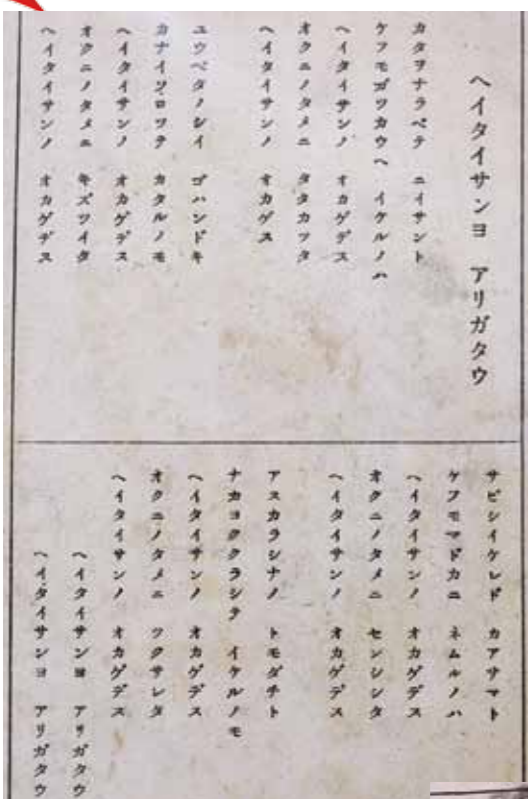 ヘイタイサンヨ アリガタウ
カタヲナラベテ ニイサント
ケフモガツカウヘ イケルノハ
ヘイタイサンノ オカゲデス
オクニノタメニ タタカツタ
ヘイタイサンノ オカゲス
ユウベタノシイ ゴハンドキ
カナイソロツテ カタルノモ
ヘイタイサンノ オカゲデス
オクニノタメニ キズツイタ
ヘイタイサンノ オカゲデス
サビシイケレド カアサマト
ケフモマドカニ ネムルノハ
ヘイタイサンノ オカゲデス
オクニノタメニ センシシタ
ヘイタイサンノ オカゲデス
アスカラシナノ トモダチト
ナカヨククラシテ イケルノモ
ヘイタイサンノ オカゲデス
オクニノタメニ ツクサレタ
ヘイタイサンノ オカゲデス
ヘイタイサンヨ アリガタウ
ヘイタイサンヨ アリガタウ